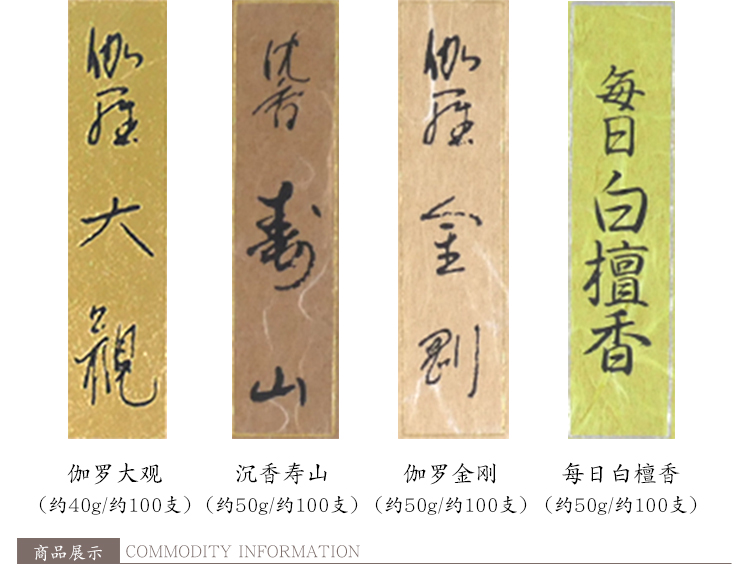 伽羅
大
観
沈香
寿
山
伽羅
金
剛
毎日
白檀香
伽罗大观
沉香寿山
伽罗金刚
每日白檀香
(约40g/约100支)
(约50g/约100支)
(约50g/约100支)
(约50g/约100支)
商品展示
COMMODITY INFORMATION